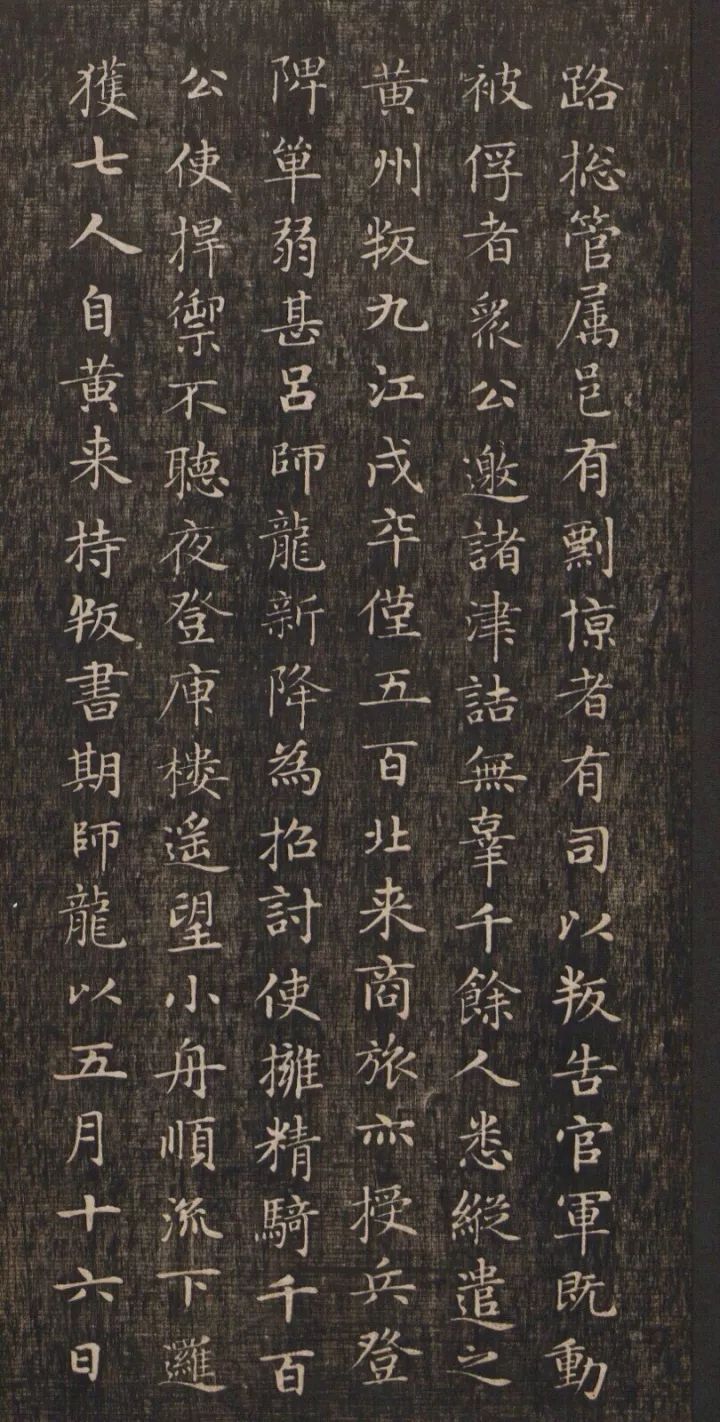 路捴管属邑有剽掠者有司以叛告官軍既動
被俘者衆公邀諸津詰無辜千餘人悉縱遣之
黄州叛九江戍卒僅五百北来商旅亦授兵登
陴單弱甚吕師龍新降為招討使擁精騎千百
公使捍禦不聽夜登庾楼遥望小舟順流下邏
獲七人自黄来持叛書期師龍以五月十六日